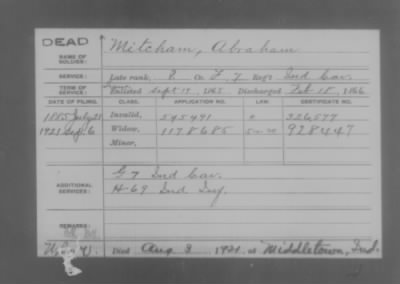 DEAD
NAME OF SOLDIER: Mitcham, Abraham
SERVICE: Late rank, P. Co. F, 7 Reg't Ind Cav.
TERM OF SERVICE: Enlisted Sept 17, 1863 Discharged Feb 18, 1866
DATE OF FILING. CLASS. APPLICATION NO. LAW. CERTIFICATE NO.
1885 July 21 Invalid, 545491 326577
1921 Sep. 6 Widow, 1178685 928447
Minor,
ADDITIONAL SERVICES: G 7 Ind Cav.
H 69 Ind Inf.
REMARKS:
Died Aug 3, 1921 at Middletown, Ind.